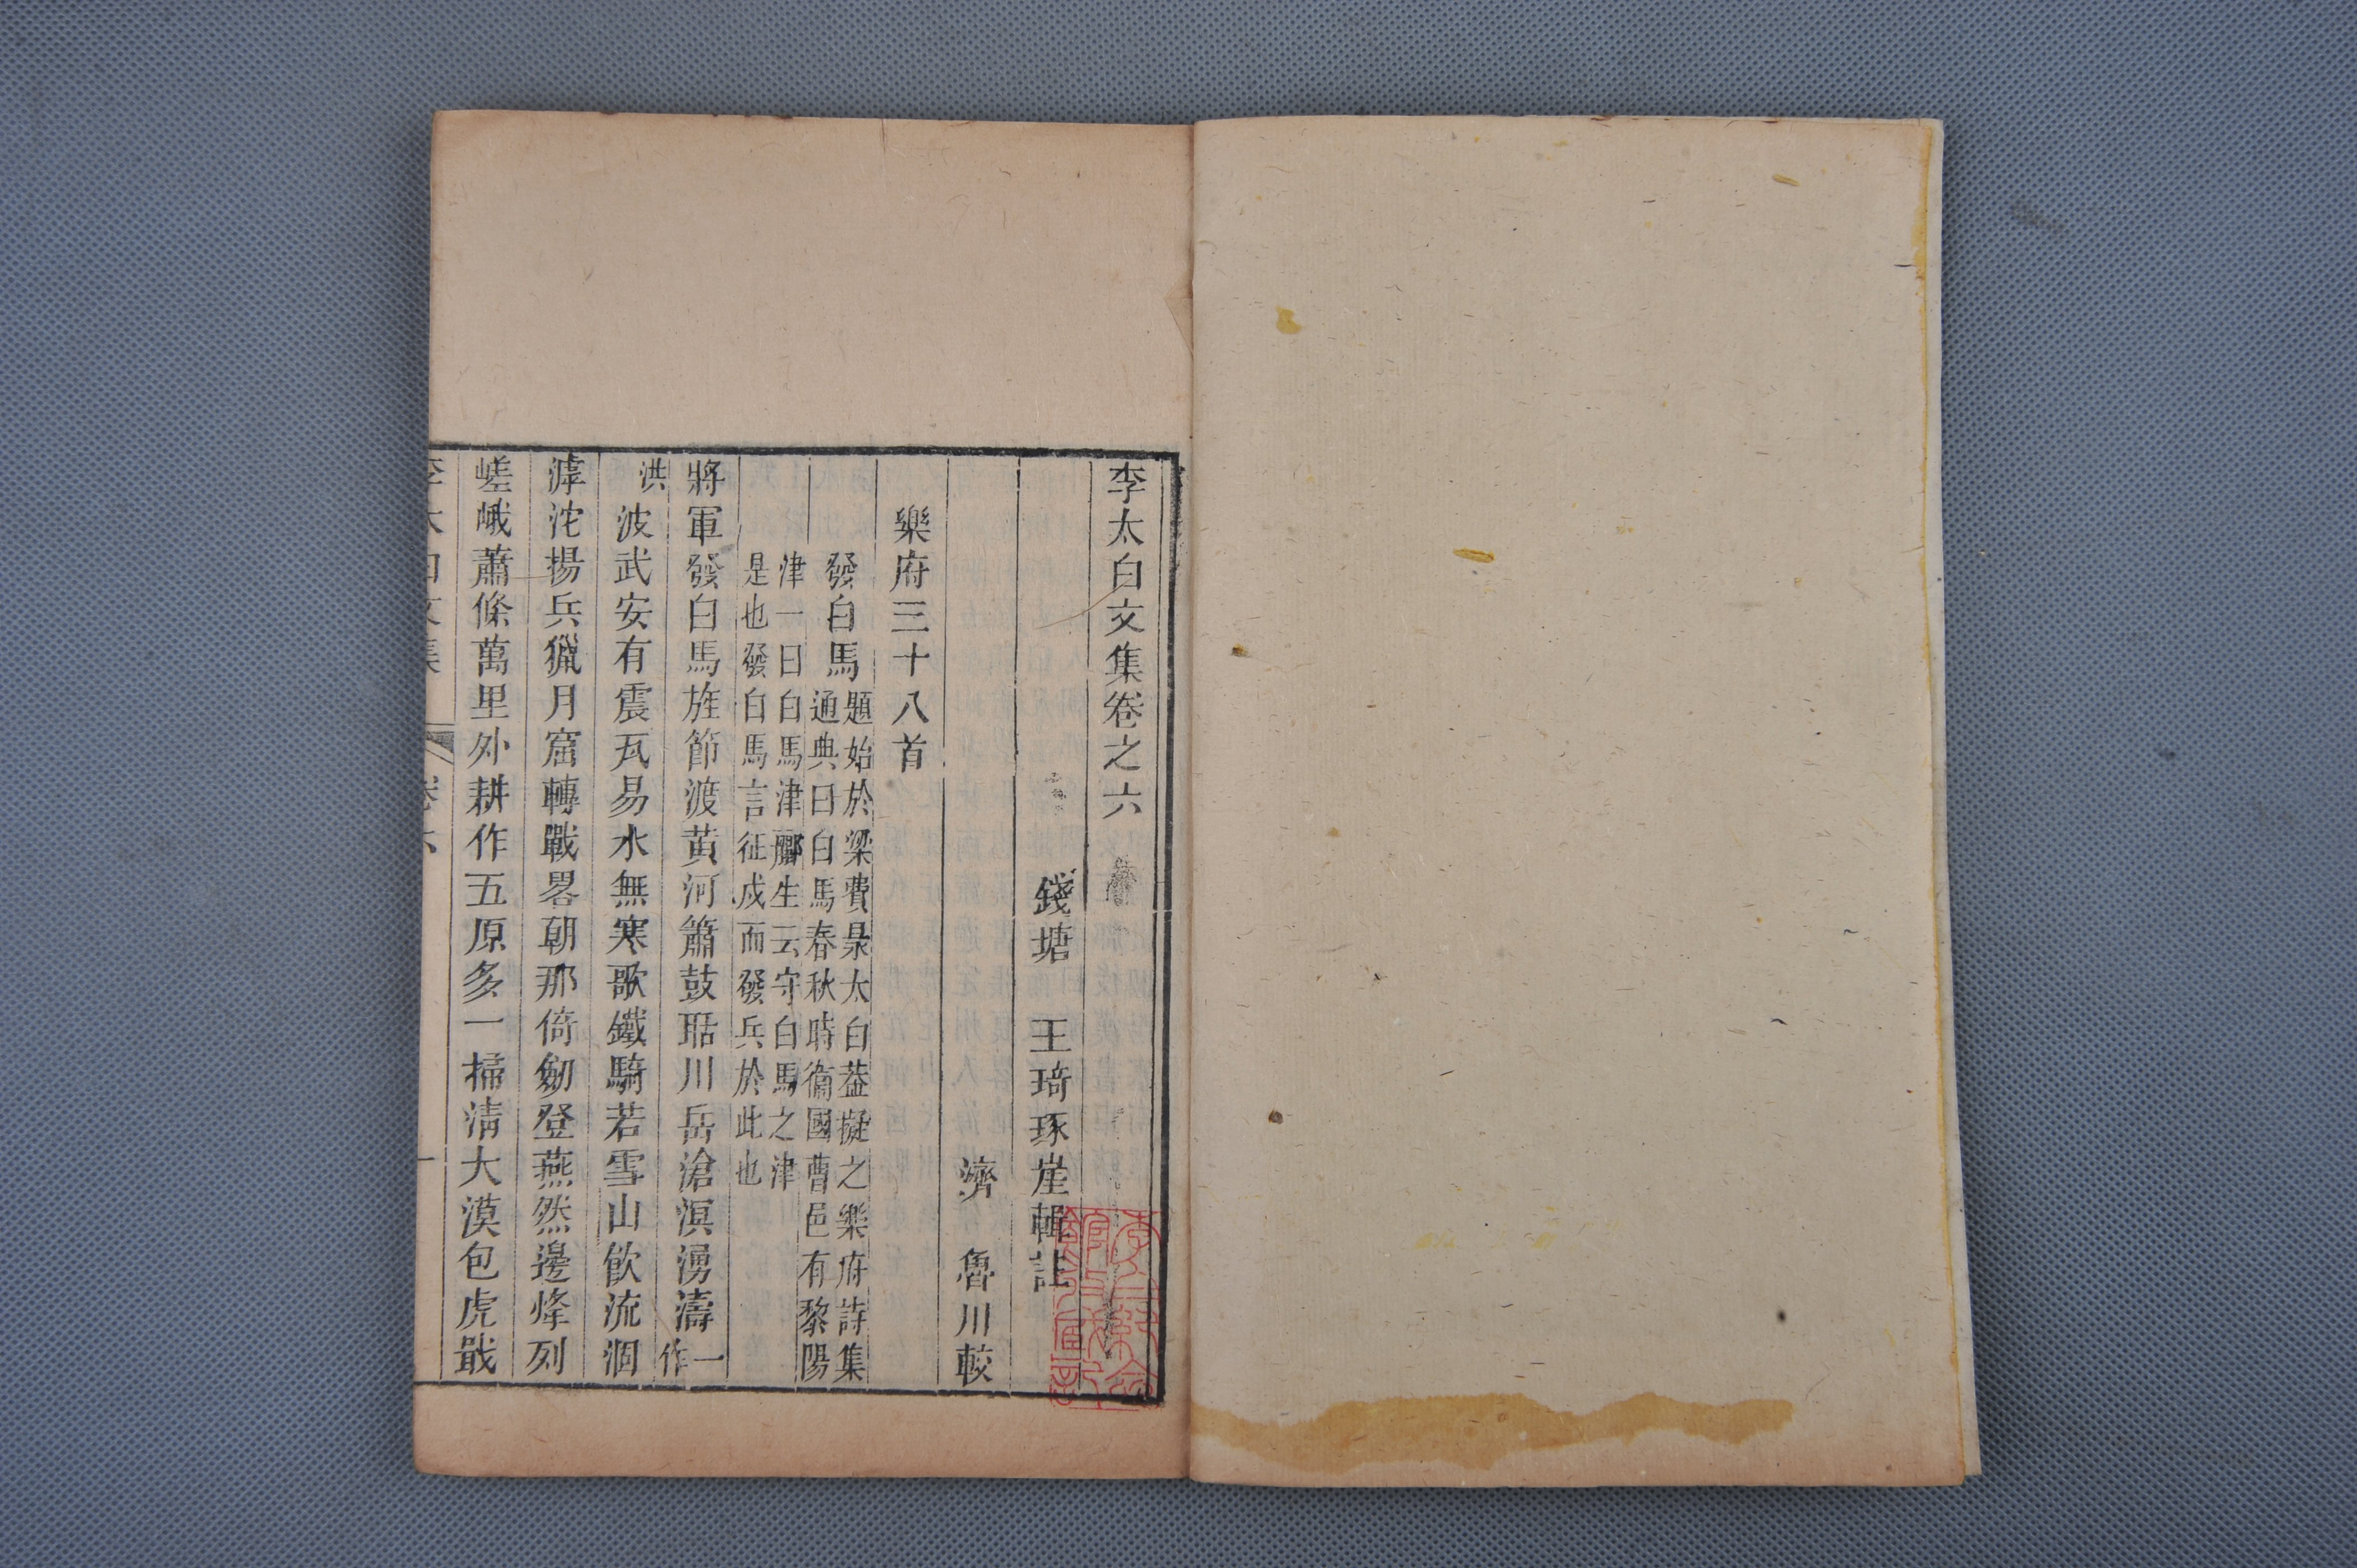 李太白文集卷之六
錢塘 王琦琢崖輯註
濟 魯川較
樂府三十八首
發白馬 題始於梁費昶太白葢擬之樂府詩集
通典曰白馬春秋時衞國曹邑有黎陽
津一曰白馬津酈生云守白馬之津
是也發白馬言征戍而發兵於此也
將軍發白馬旌節渡黃河簫鼓聒川岳滄溟湧濤 一作
洪
波武安有震瓦易水無寒歌鐵騎若雪山飲流涸
滹沱揚兵獵月窟轉戰畧朝那倚劒登燕然邊烽列
嵯峨蕭條萬里外耕作五原多一掃清大漠包虎戢
李太白文集 卷六 一